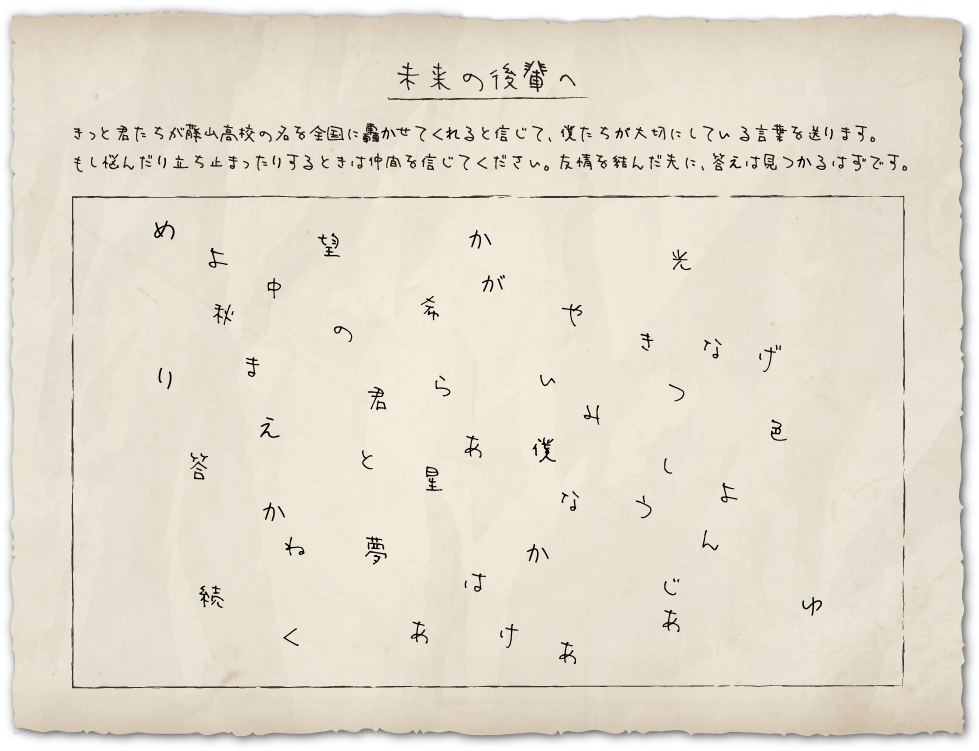 未来の後輩へ
きっと君たちが藤山高校の名を全国に轟かせてくれると信じて、僕たちが大切にしている言葉を送ります。
もし悩んだり立ち止まったりするときは仲間を信じてください。友情を結んだ先に、答えは見つかるはずです。
め
よ
望
か
光
中
が
秋
希
や
の
き
な
げ
り
ま
君
ら
い
つ
み
え
色
と
あ
僕
答
星
し
よ
か
な
う
ん
ね
夢
か
は
じ
続
ゆ
く
あ
け
あ
あ